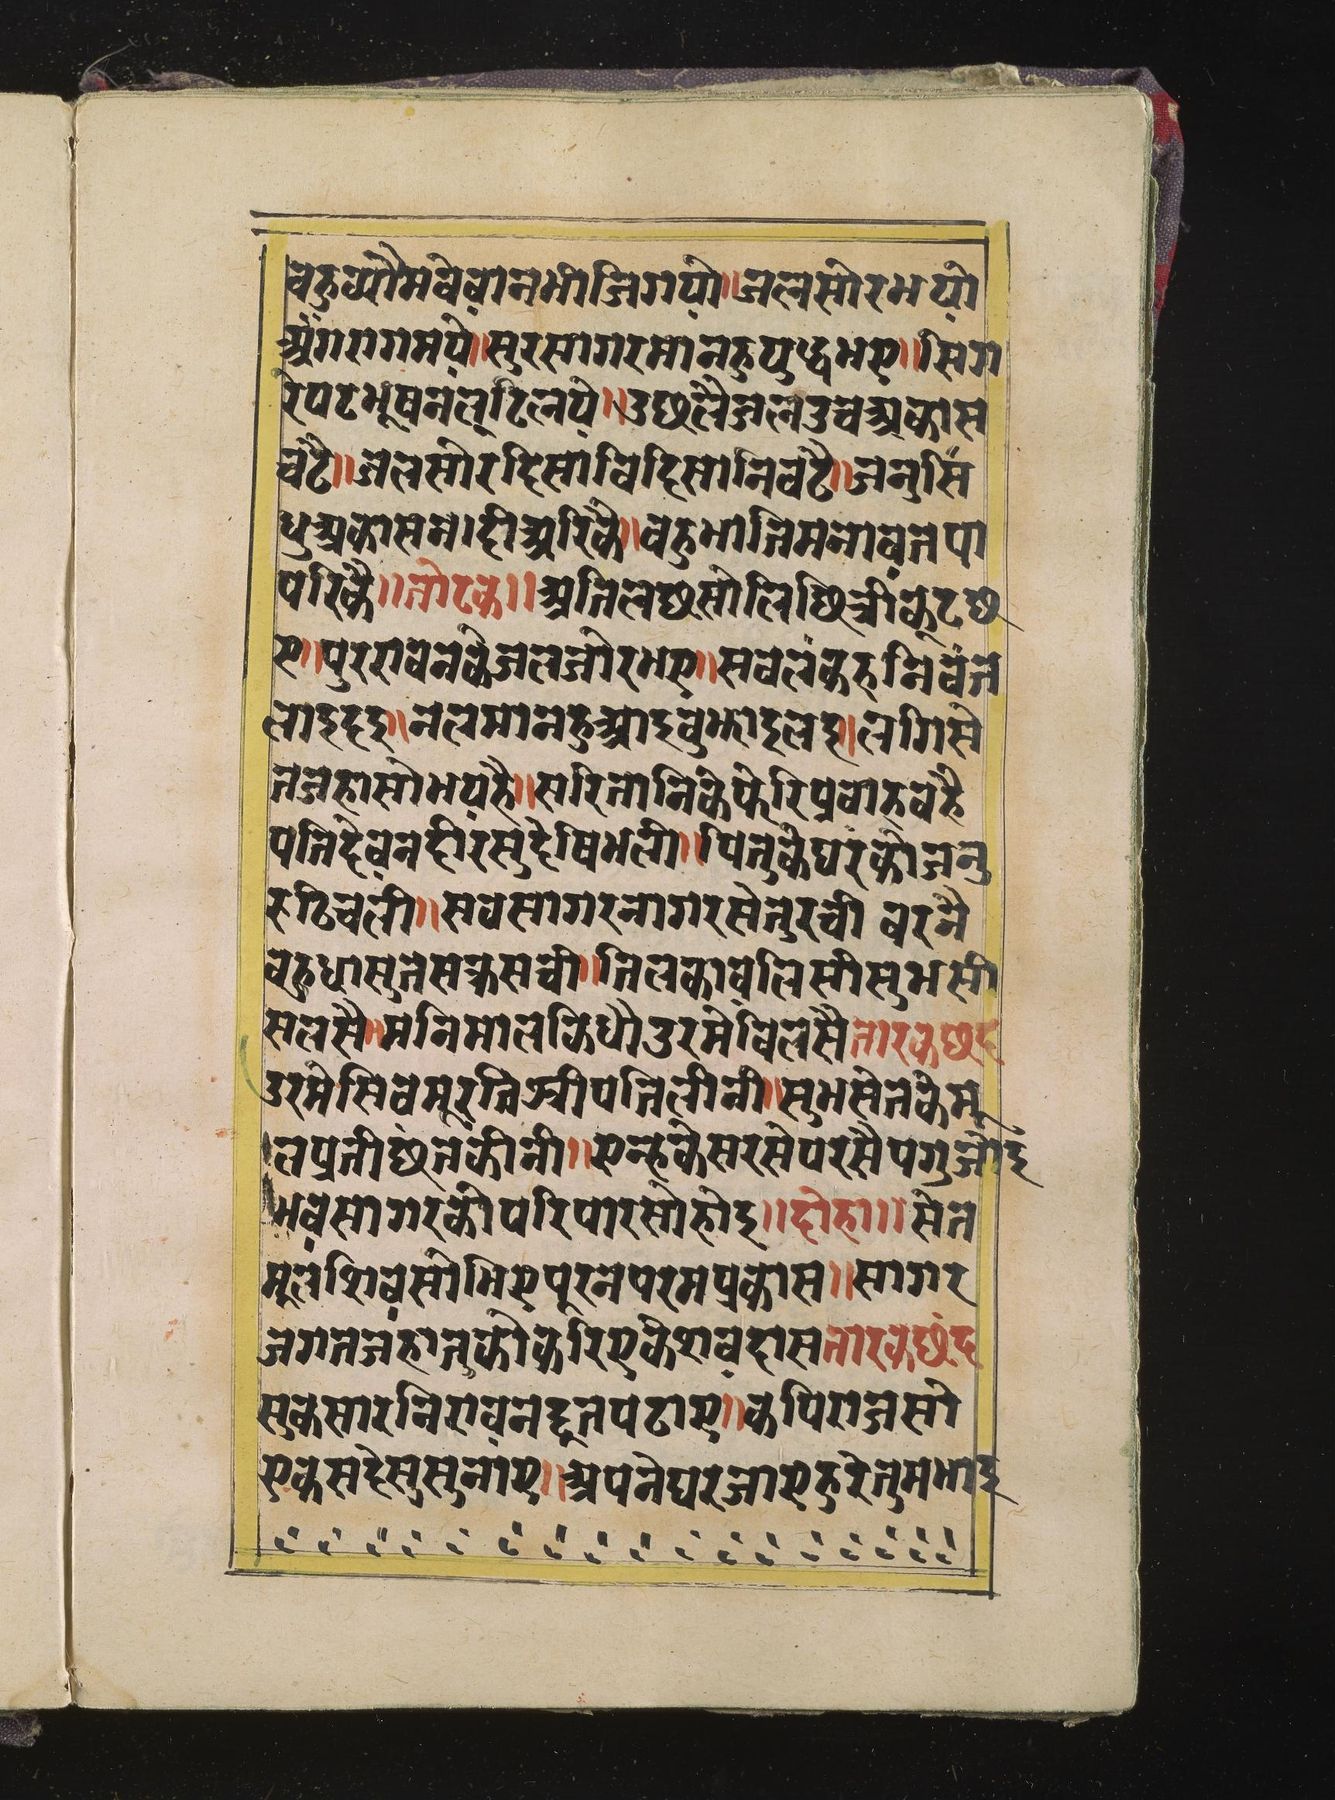 वहुव्योमवेवानभीजिगयो॥जलसोरभयो
अंगरागमये॥सुरसागरमानहुयुद्धभए॥सिग
रेपटभूषनलूटिलये॥उछलैजलउचअकास
चटै॥जलसोरदिसाविदिसानिवटै॥जनुसिं
धुअकासनदीअरिकै॥वहुभातिमनावतपा
परिकै॥तोटक॥अतिलछसोलिछिन्नीकूटछ
ए॥पुररावनकेजलजोरभए॥सवलंकहनिवंत
लाइहइ॥नलमानहुआइवुझाइलइ॥लगिसे
तजहासोभयहै॥सरितानिकेफेरिप्रवाहवहै
पतिदेवनदीरसुदेषिभली॥पितुकेघरकोजनु
रुठिचली॥सवसागरनागरसेतुरची वरनै
वहुधासुतसक्रसची॥तिलकावलिसीसुभसी
सलसै॥मनिमालकिधौउरमेविलसै तारकछंद
उरमेसिवमूरतिश्रीपतिलीनी॥सुभसेतकेमू
लप्रतीछतकीनी॥एन्हकेसरसेपरसैपगुजोइ
भवसागरकोपरिपारसोहोइ॥दोहा॥सेत
मूलशिवसोभिएपूरनपरमप्रकास॥सागर
जगतजहाजकोकरिएकेशवदास तारकछंद
सुकसारनिरावनदूतपठाए॥कपिराजसो
एकसदेसुसुनाए॥अपनेघरजाएहुरेतुमभाइ